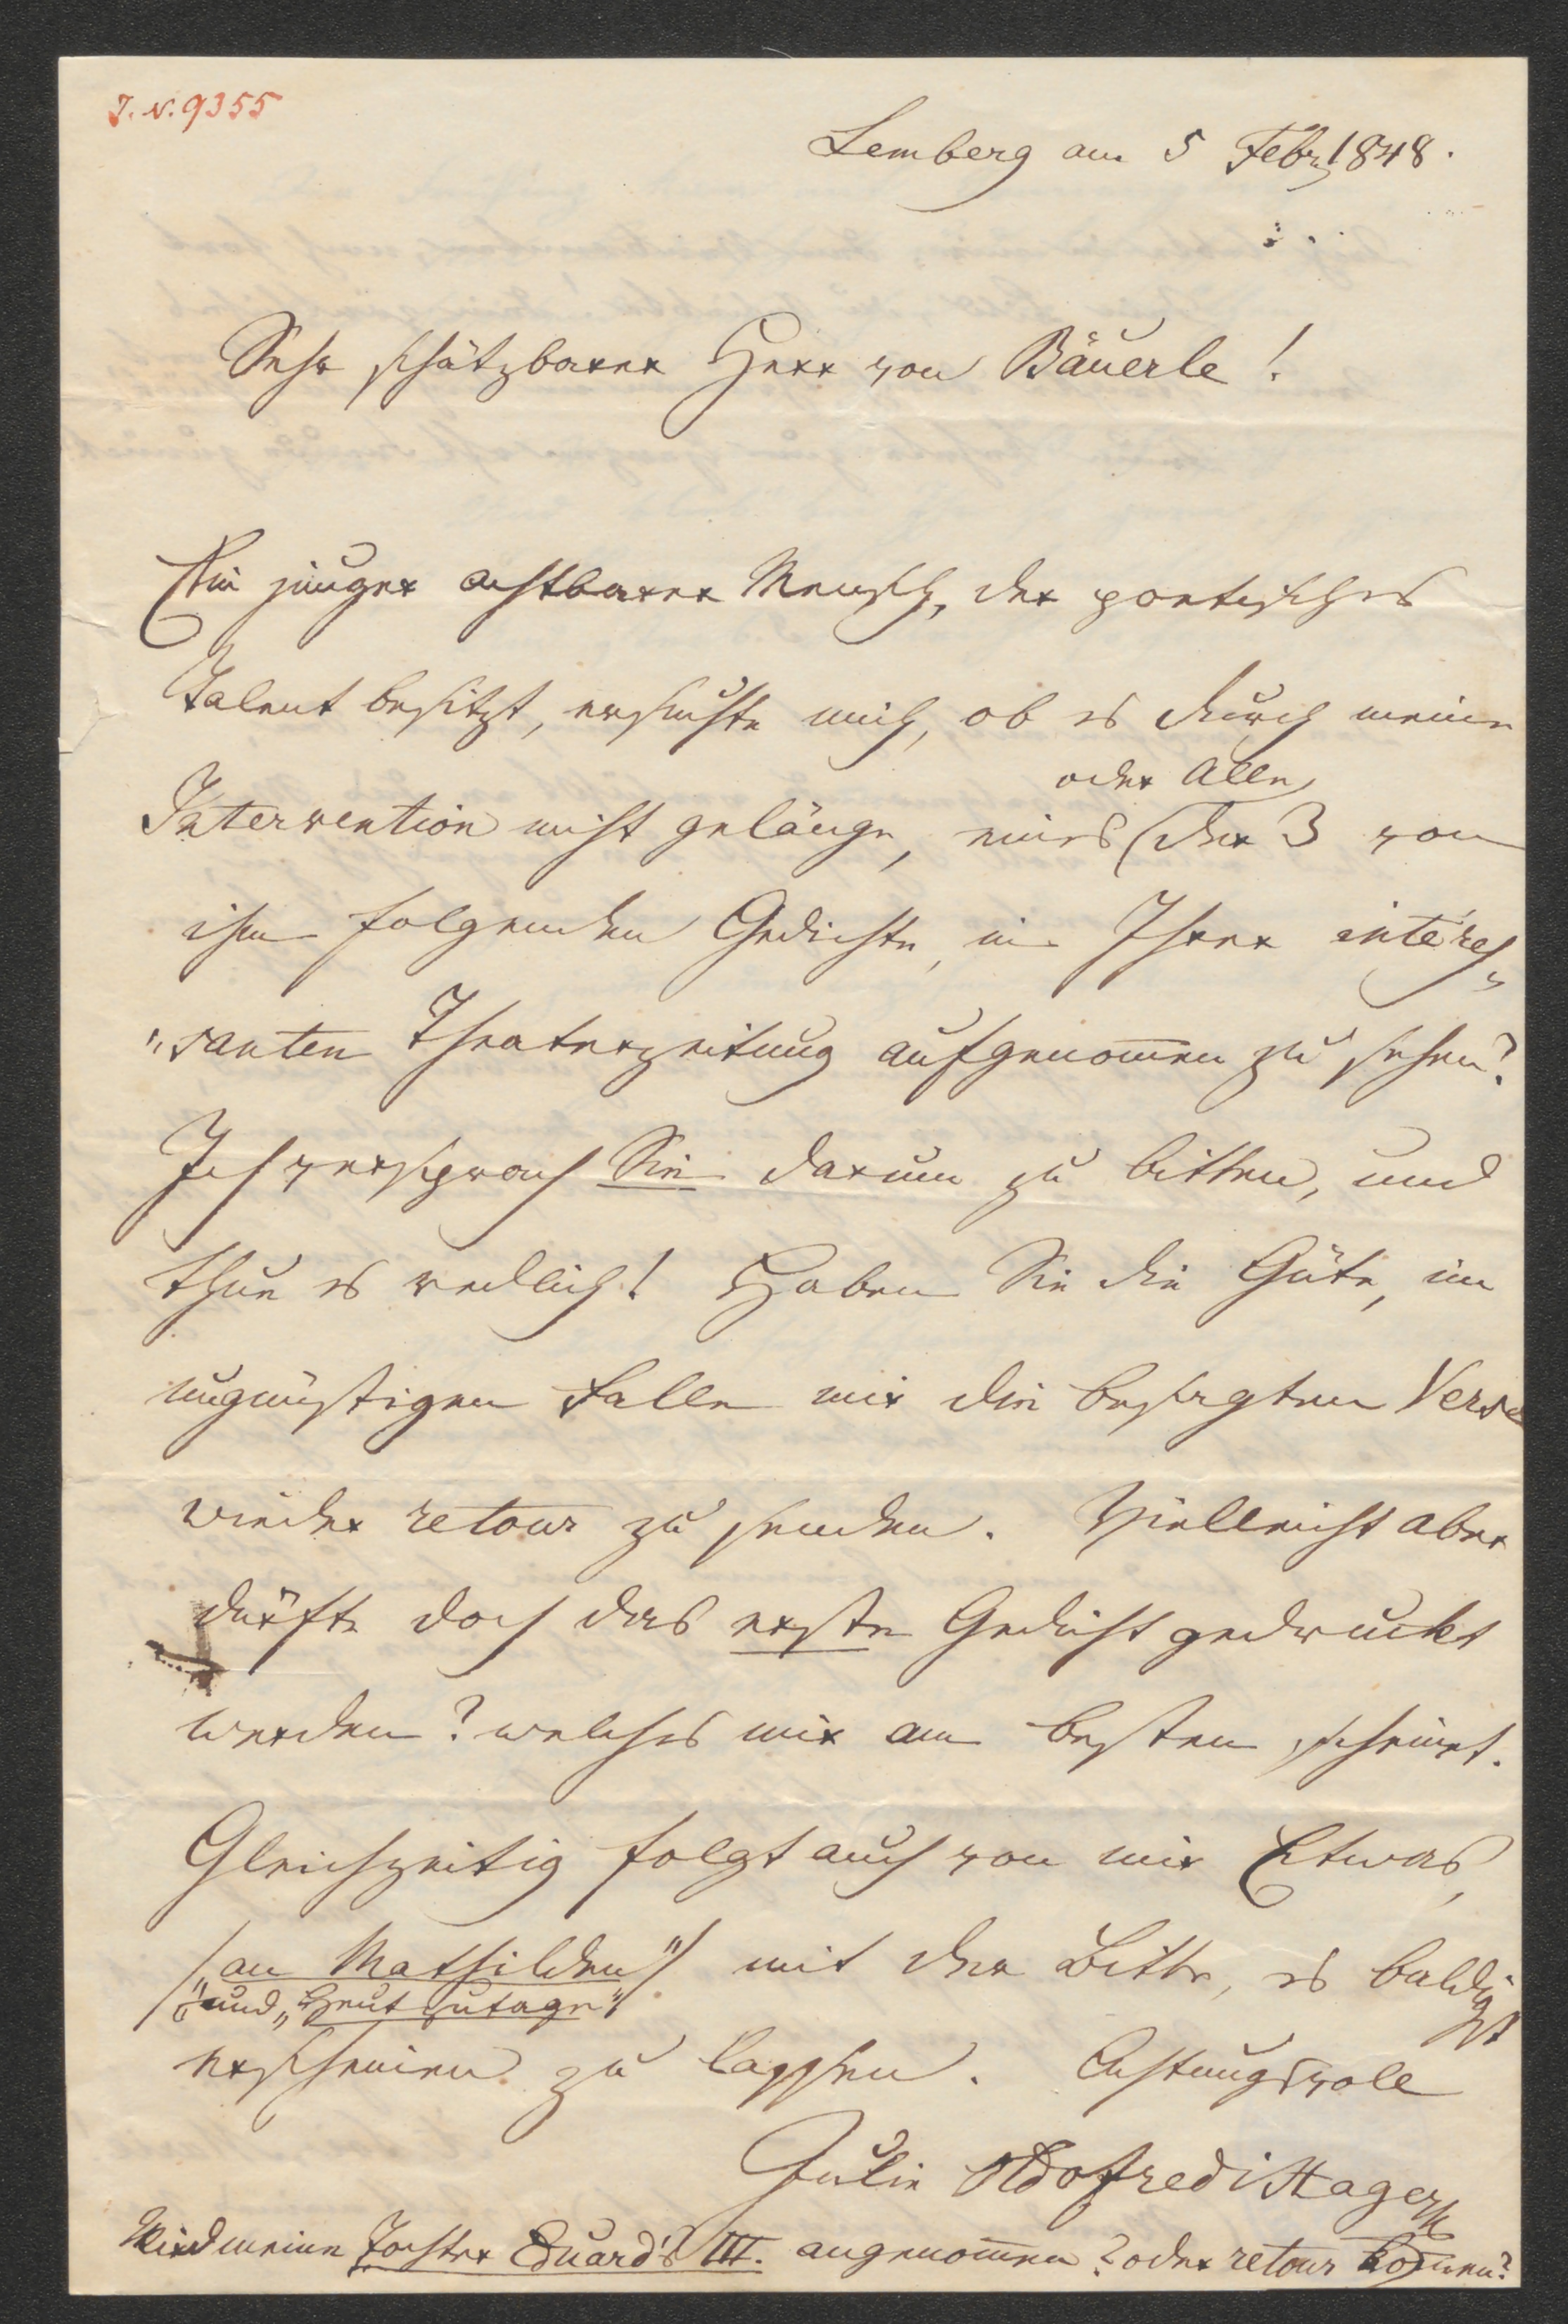 J. N. 9355
Lemberg am 5 Febr 1848.
Sehr schätzbarer Herr von Bäuerle!
Ein junger achtbarer Mensch, der poetisches
Talent besitzt, ersuchte mich, ob es durch meine
oder Alle
Intervention nicht gelänge, eines (der 3 von
ihm folgenden Gedichte, in Ihrer interes„
„santen Theaterzeitung aufgenom̅en zu sehen?
Ich versprach Sie darum zu bitten, und
thue es redlich! Haben Sie die Güte, im
ungünstigen Falle mir die besagten Verse
wieder retour zu senden. Vielleicht aber
dürfte doch das erste Gedicht gedruckt
werden? welches mir am besten scheinet.
Gleichzeitig folgt auch von mir Etwas,
/„an Mathilden"/ mit der Bitte, es baldigst
/„und „Heut zutage"/
erscheinen zu lassen. Achtungsvolle
Julie Oldofredi Hager
Wird meine Tochter Eduard's III. angenom̅en? oder retour kom̅en?